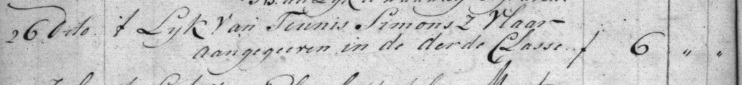 26 Dito t Lyk van Teunis Simonsz Vlaar
aangegeeven in de derde Classe f 6 " "